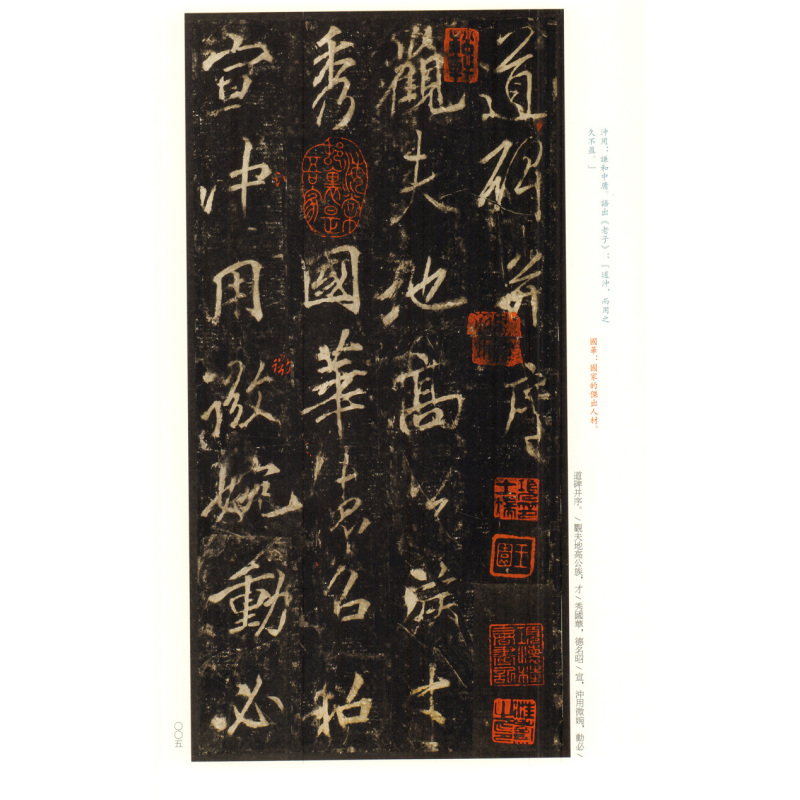 沖用：謙和中庸。語出《老子》：「道沖，而用之
久不盈。」
國華：國家的傑出人材。
道碑并序。/觀夫地高公族，才/秀國華，德名昭/宣，沖用微婉，動必/
道碑并序
觀夫地高公族才
秀國華德名昭
宣沖用微婉動必
〇〇五